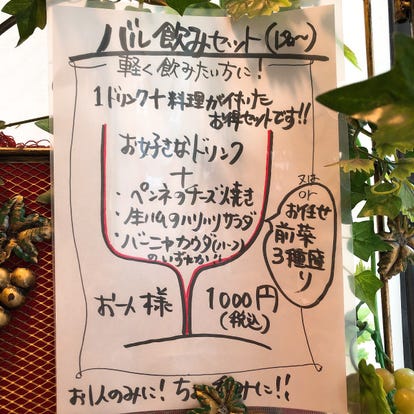 バル飲みセット(12名〜)
軽く飲みたい方に!
1ドリンク+料理が付いた
お得セットです!!
お好きなドリンク
+
・ペンネのチーズ焼き
・生ハムのハリハリサラダ
・バーニャカウダ(ハーフ)
のいずれか
又は
or
お任せ
前菜
3種盛り
お一人様 1000円
(税込)
お1人のみに!ちょい飲みに!!